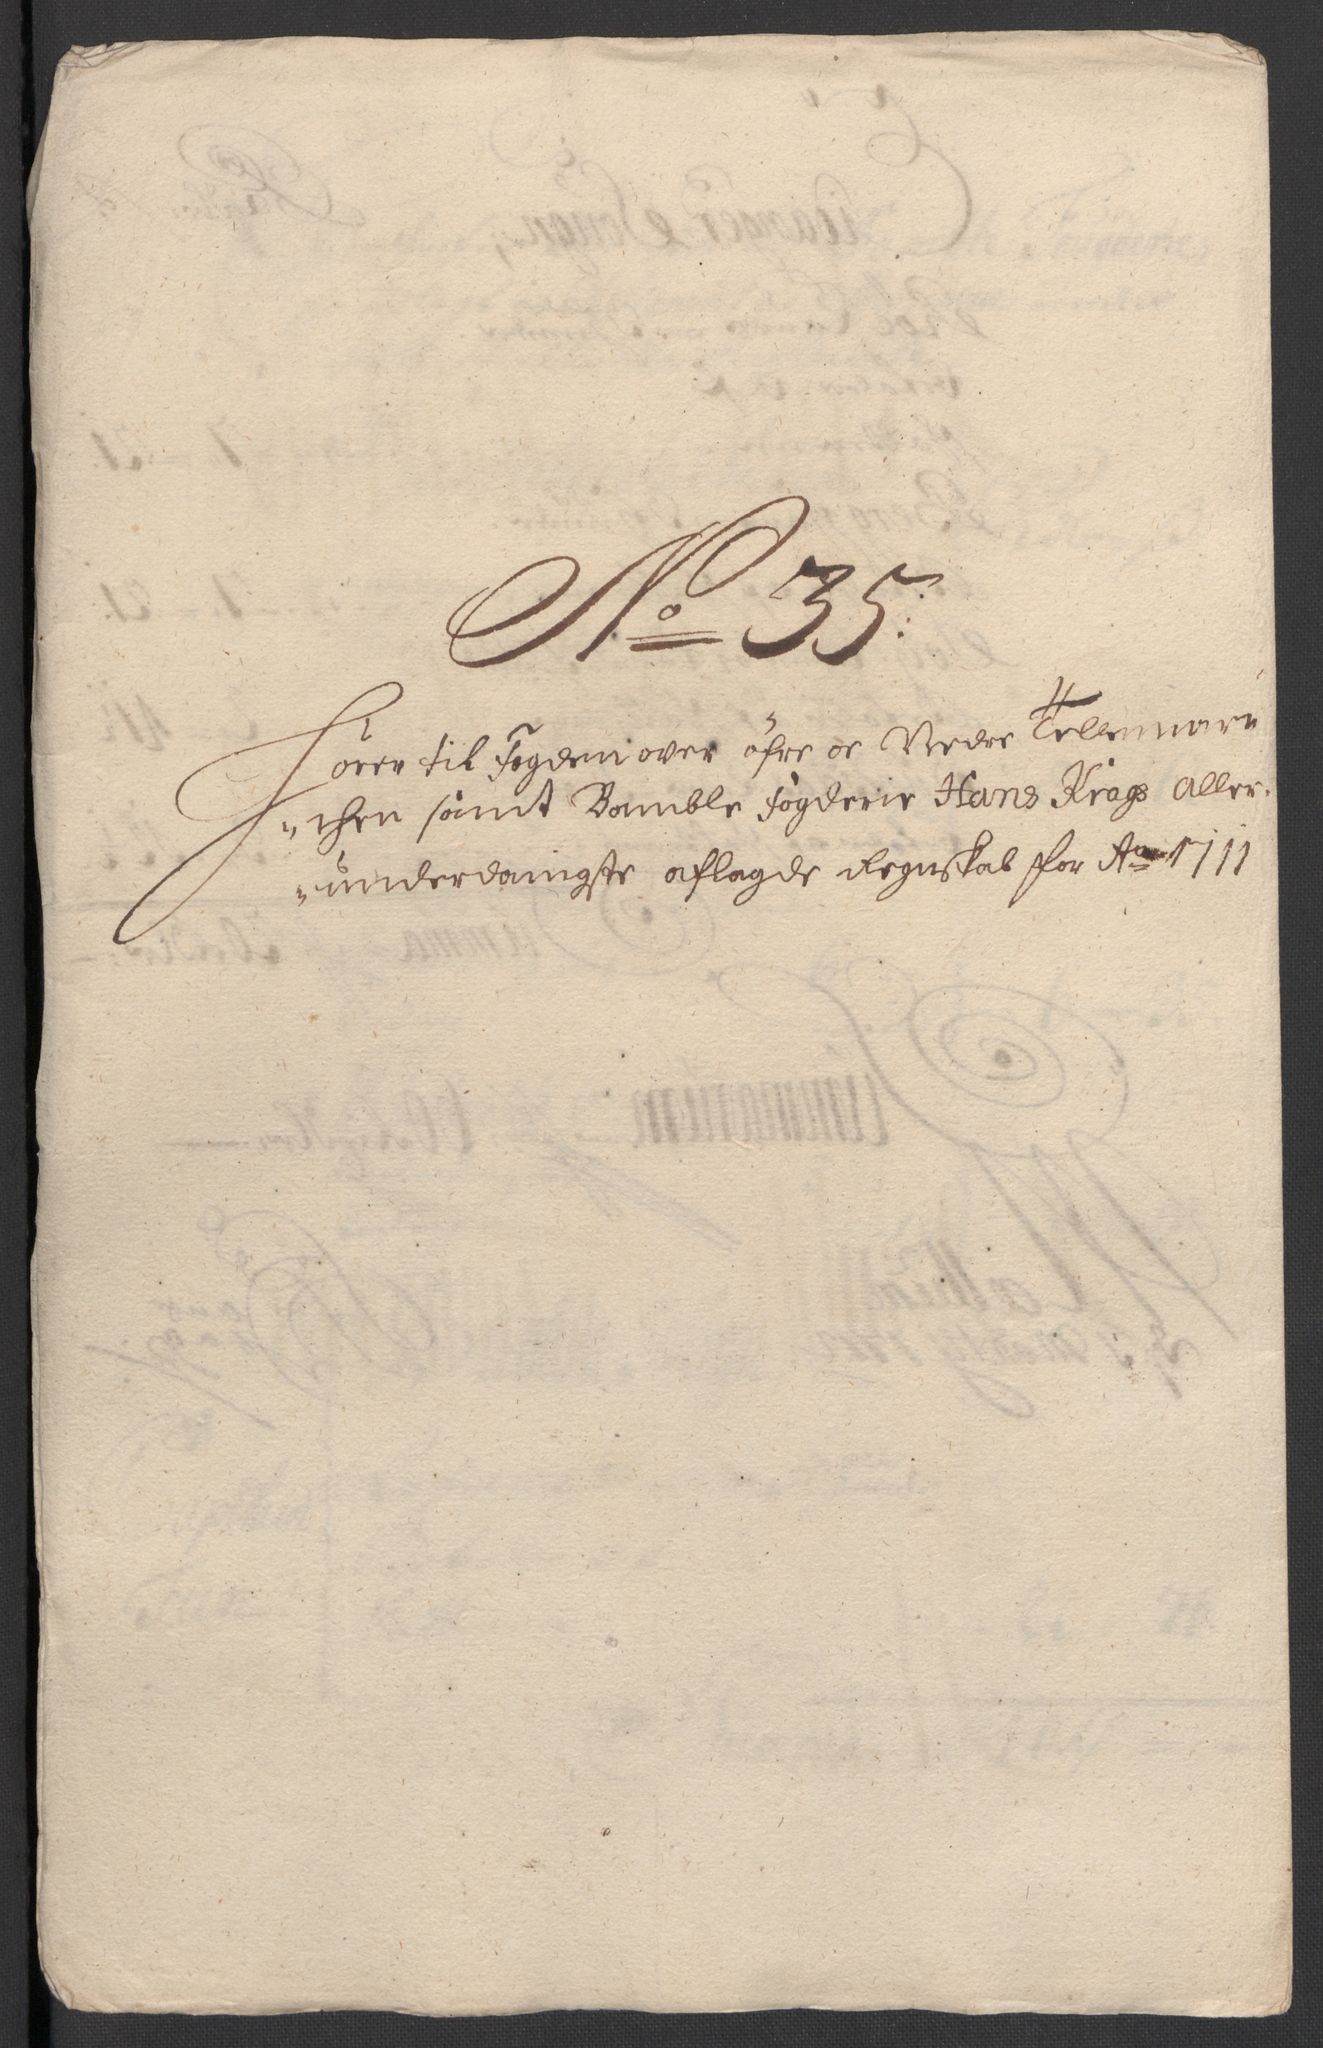 No 35:
Hörer til Fogden over öfre oc Nedre Tellemar„
„chen samt Bamble Fögderie Hans Krags Aller„
„underdanigste aflagde Regnskab for Ao 1711